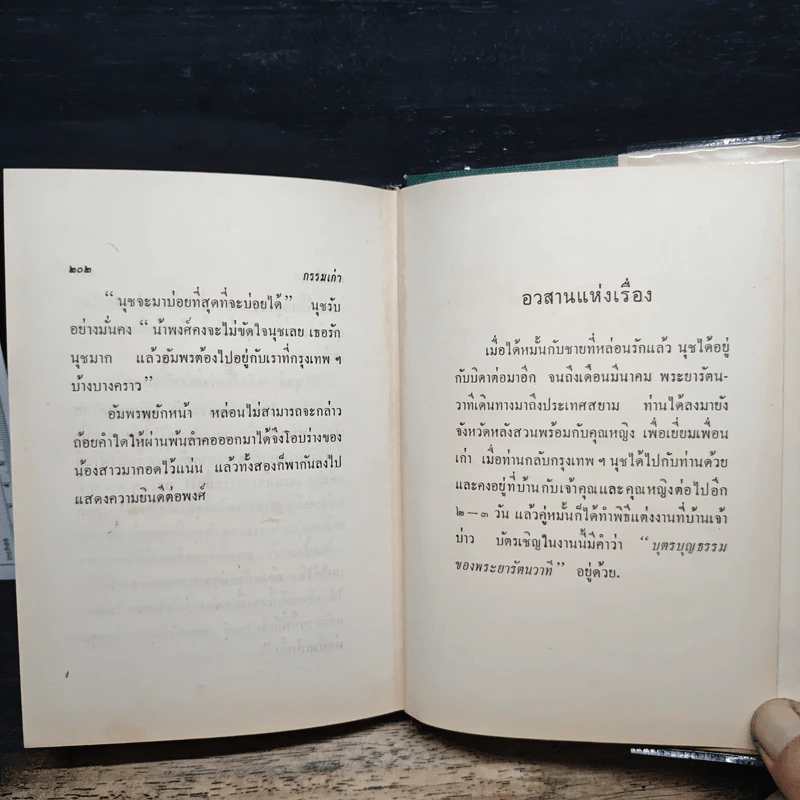 ๒๐๒
กรรมเก่า
“ นุชจะมาบ่อยที่สุดที่จะบ่อยได้ ” นุชรับ
อย่างมั่นคง “ น้าพงศ์คงจะไม่ขัดใจนุชเลย เธอรัก
นุชมาก แล้วอัมพรต้องไปอยู่กับเราที่กรุงเทพ ฯ
บ้างบางคราว ”
อัมพรพยักหน้า หล่อนไม่สามารถจะกล่าว
ถ้อยคำใดให้ผ่านพ้นลำคอออกมาได้จึงโอบร่างของ
น้องสาวมากอดไว้แน่น แล้วทั้งสองก็พากันลงไป
แสดงความยินดีต่อพงศ์
อวสานแห่งเรื่อง
เมื่อได้หมั้นกับชายที่หล่อนรักแล้ว นุชได้อยู่
กับบิดาต่อมาอีก จนถึงเดือนมีนาคม พระยารัตน-
วาทีเดินทางมาถึงประเทศสยาม ท่านได้ลงมายัง
จังหวัดหลังสวนพร้อมกับคุณหญิง เพื่อเยี่ยมเพื่อน
เก่า เมื่อท่านกลับกรุงเทพ ฯ นุชได้ไปกับท่านด้วย
และคงอยู่ที่บ้านกับเจ้าคุณและคุณหญิงต่อไปอีก
๒ — ๓ วัน แล้วคู่หมั้นก็ได้ทำพิธีแต่งงานที่บ้านเจ้า
บ่าว บัตรเชิญในงานนี้มีคำว่า “ บุตรบุญธรรม
ของพระยารัตนวาที ” อยู่ด้วย.